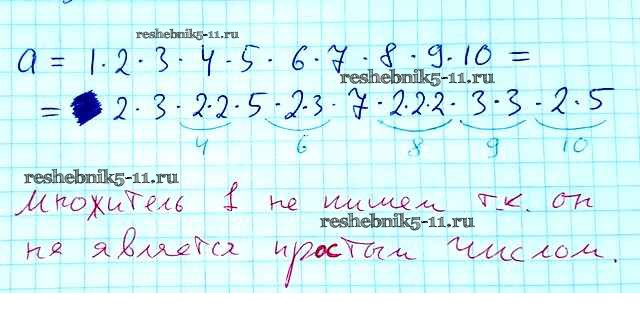 reshebnik5-11.ru
a = 1·2·3·4·5·6·7·8·9·10 =
reshebnik5-11.ru
= 2·3·2·2·5·2·3·7·2·2·2·3·3·2·5
4 6 8 9 10
reshebnik5-11.ru
Множитель 1 не пишем т.к. он
reshebnik5-11.ru
не является простым числом.